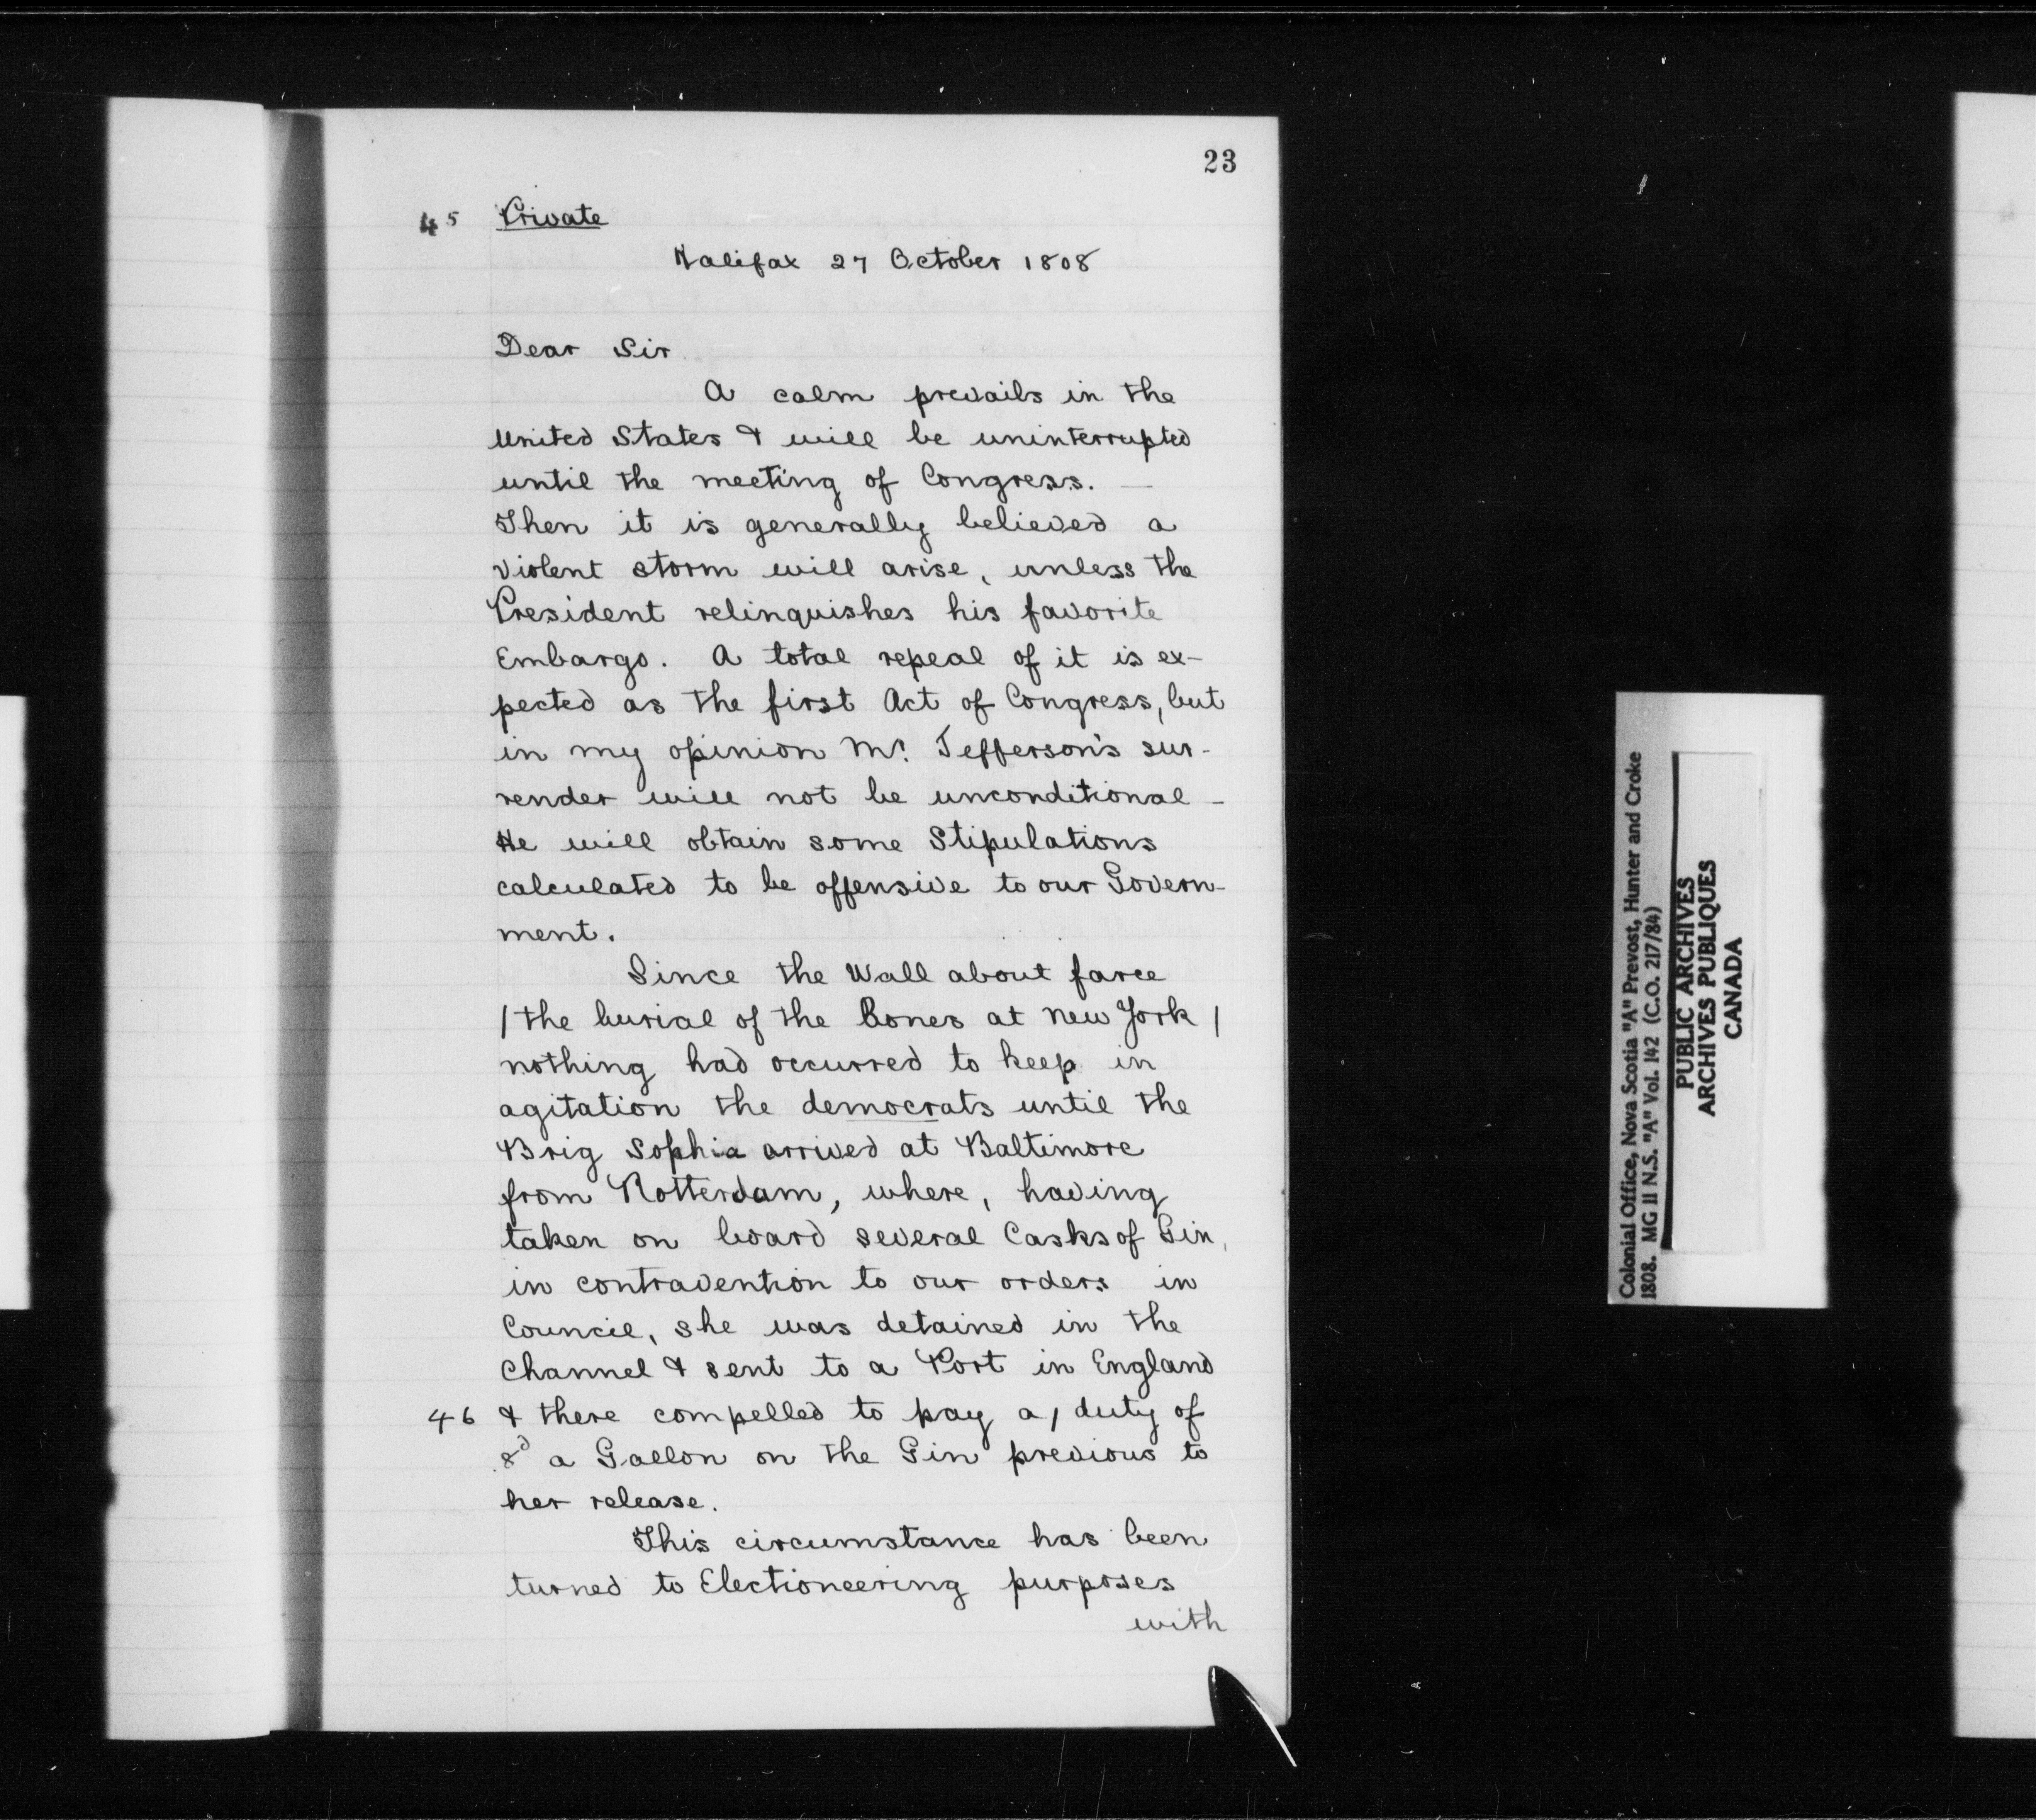 23
45 Private
Halifax 27 October 1808
Dear Sir
A calm prevails in the
United States & will be uninterrupted
until the meeting of Congress. —
Then it is generally believed a
violent storm will arise, unless the
President relinquishes his favorite
Embargo. A total repeal of it is ex-
pected as the first Act of Congress, but
in my opinion Mr. Jefferson's sur-
render will not be unconditional -
He will obtain some Stipulations
calculated to be offensive to our Govern-
ment.
Since the Wall about farce
/ the burial of the bones at New York /
nothing had occurred to keep in
agitation the democrats until the
Brig Sophia arrived at Baltimore
from Rotterdam, where, having
taken on board several Casks of Gin,
in contravention to our orders in
Council, she was detained in the
Channel & sent to a Port in England
46 & there compelled to pay a / duty of
8d a Gallon on the Gin previous to
her release.
This circumstance has been
turned to Electioneering purposes
with
Colonial Office, Nova Scotia "A" Prevost, Hunter and Croke
1808. MG 11 N.S. "A" Vol. 142 (C.O. 217/84)
PUBLIC ARCHIVES
ARCHIVES PUBLIQUES
CANADA